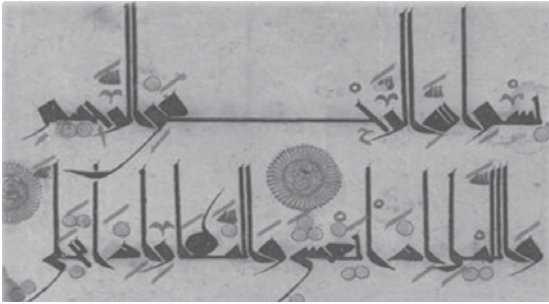 بسم الله الرحمن الرحيم
واليل اذا يغشى والنهار اذا تجلى